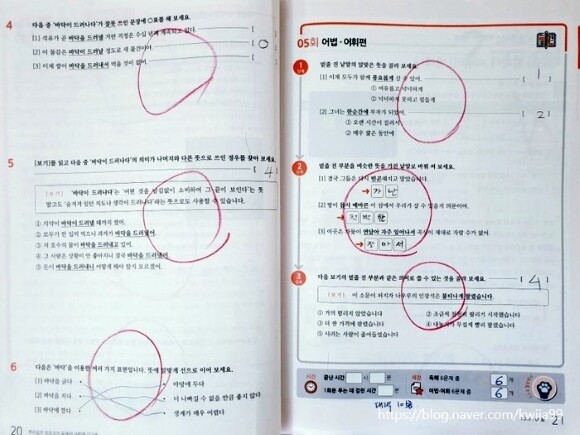 4
다음 중 '바닥이 드러나다'가 잘못 쓰인 문장에 ○표를 해 보세요.
[1] 석유가 곧 바닥을 드러낼 거란 걱정은 수십 년째 계속되고 있다.
[2] 이 물감은 바닥이 드러날 정도로 새 물건이다. [ ○ ]
[3] 이제 쌀이 바닥을 드러내서 먹을 것이 없어.
5
[보기]를 읽고 다음 중 '바닥이 드러나다'의 의미가 나머지와 다른 뜻으로 쓰인 경우를 찾아 보세요.
[ 4 ]
[보기] '바닥이 드러나다'는 '어떤 것을 남김없이 소비하여 그 끝이 보인다'는 뜻
말고도 '숨겨져 있던 의도나 생각이 드러나다'라는 뜻으로도 사용할 수 있습니다.
① 치약이 바닥을 드러낸 채
② 모두가 한 입씩 먹으니 과자가 바닥을 드러냈어.
③ 저 호수의 물이 바닥을 드러내고 있어.
④ 그 사람은 상황이 안 좋아지니 결국 바닥을 드러냈어.
⑤ 돈이 바닥을 드러내니 어떻게 해야 할지 모르겠어.
6
다음은 '바닥'을 이용한 여러 가지 표현입니다. 뜻에 알맞게 선으로 이어 보세요.
[1] 바닥을 긁다
[2] 바닥을 치다
[3] 바닥을 짚다
바닥에 두다
더 나빠질 수 없을 만큼 좋지 않다
생계가 매우 어렵다
20
05회 어법·어휘편
1
단계
밑줄 친 낱말의 알맞은 뜻을 골라 보세요.
[1] 이제 모두가 함께 풍요롭게 살 수 있어. [ 1 ]
① 여유롭고 넉넉하게
② 넉넉하게 못하고 힘들게
[2] 그녀는 한순간에 부자가 되었어. [ 2 ]
① 오랜 시간이 걸려서
② 매우 짧은 동안에
2
단계
밑줄 친 부분을 비슷한 뜻을 가진 낱말로 바꿔 써 보세요.
[1] 결국 그들은 다시 빈곤해지고 말았습니다.
→ 가난
[2] 땅이 몹시 메마른 이 섬에서 우리가 살 수 있을지 의문이야.
→ 척박한
→ 잦아서
3
단계
다음 보기의 밑줄 친 부분과 같은 의미로 쓸 수 있는 것을 골라 보세요. [ 4 ]
[보기] 이 소문이 퍼지자 나우루의 인광석은 불티나게 팔렸습니다.
① 거의 팔리지 않았습니다
② 조금씩 천천히 팔리기 시작했습니다
③ 더 싼 가격에 팔렸습니다
④ 내놓자마자 무섭게 빨리 팔렸습니다
⑤ 사려는 사람이 줄어들었습니다
시간 끝난 시간 시 분
1회분 푸는 데 걸린 시간 분
채점 독해 6문제 중 6 개
어법·어휘 6문제 중 6 개
https://blog.naver.com/kwjia99
21